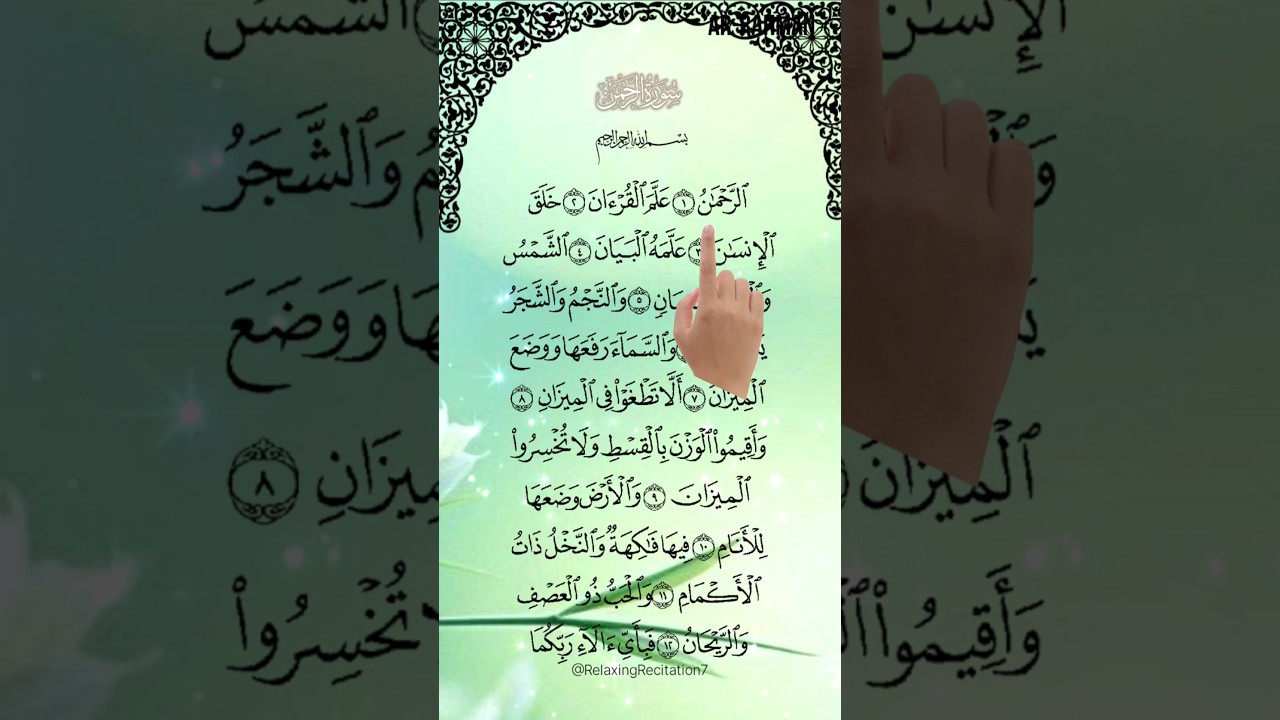 AR-RAHMAN
سُورَةُ الرَّحْمَٰن
بسم الله الرحمن الرحيم
ٱلرَّحْمَٰنُ ١ عَلَّمَ ٱلْقُرْءَانَ ٢ خَلَقَ
ٱلْإِنسَٰنَ ٣ عَلَّمَهُ ٱلْبَيَانَ ٤ ٱلشَّمْسُ
٥ وَٱلنَّجْمُ وَٱلشَّجَرُ
وَٱلسَّمَآءَ رَفَعَهَا وَوَضَعَ
ٱلْمِيزَانَ ٧ أَلَّا تَطْغَوْا۟ فِى ٱلْمِيزَانِ ٨
وَأَقِيمُوا۟ ٱلْوَزْنَ بِٱلْقِسْطِ وَلَا تُخْسِرُوا۟
ٱلْمِيزَانَ ٩ وَٱلْأَرْضَ وَضَعَهَا
لِلْأَنَامِ ١٠ فِيهَا فَٰكِهَةٌ وَٱلنَّخْلُ ذَاتُ
ٱلْأَكْمَامِ ١١ وَٱلْحَبُّ ذُو ٱلْعَصْفِ
وَٱلرَّيْحَانُ ١٢ فَبِأَىِّ ءَالَآءِ رَبِّكُمَا
@RelaxingRecitation7